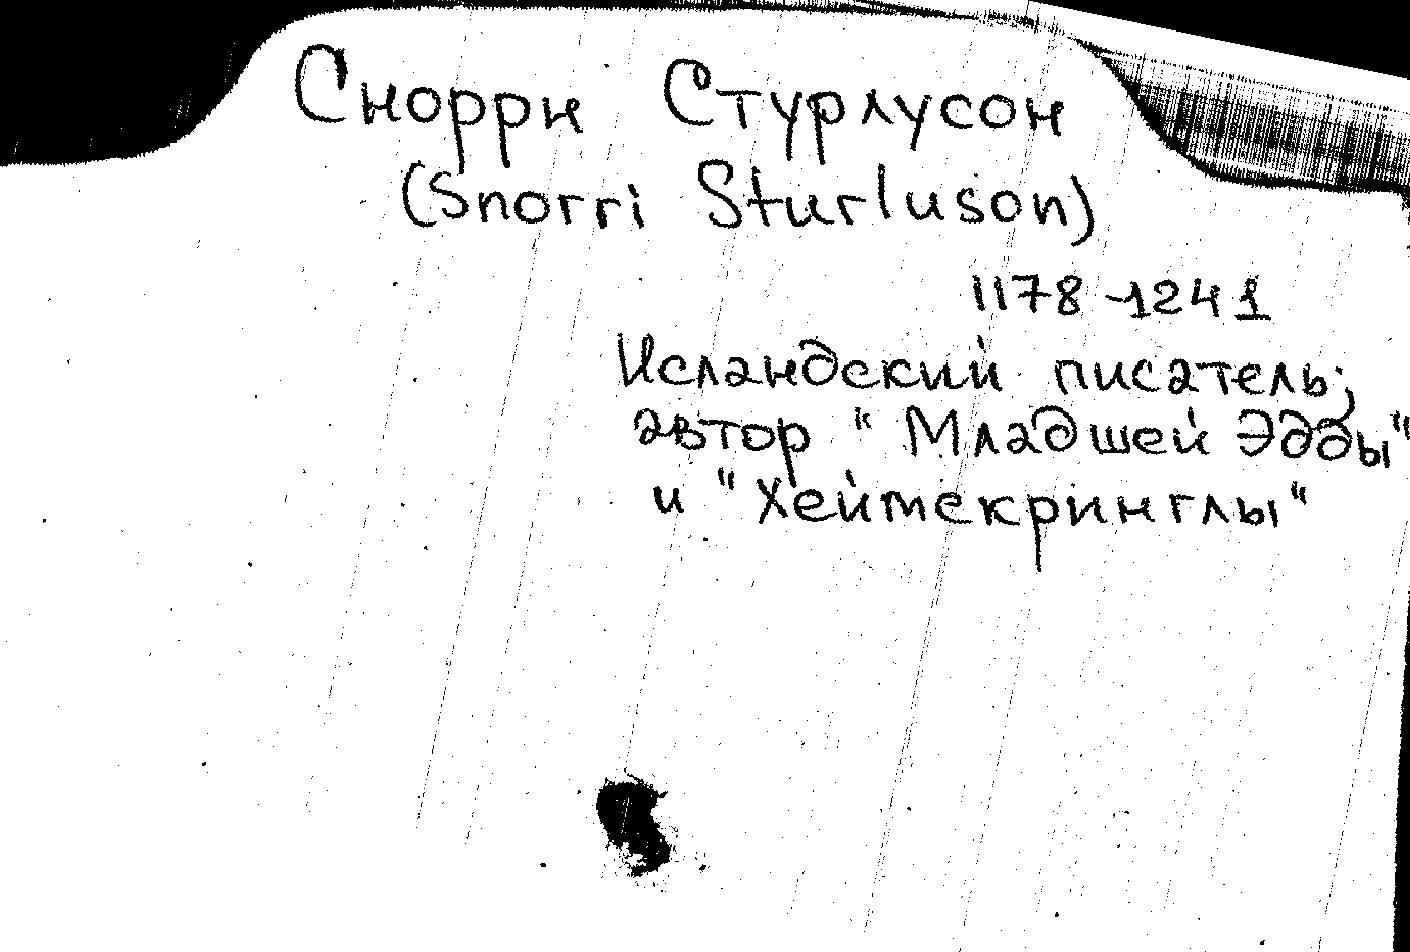 Снорри Стурлусон
(Snorri Sturluson)
1178-1241
Исландский писатель;
автор "Младшей Эдды"
и "Хеймскринглы"